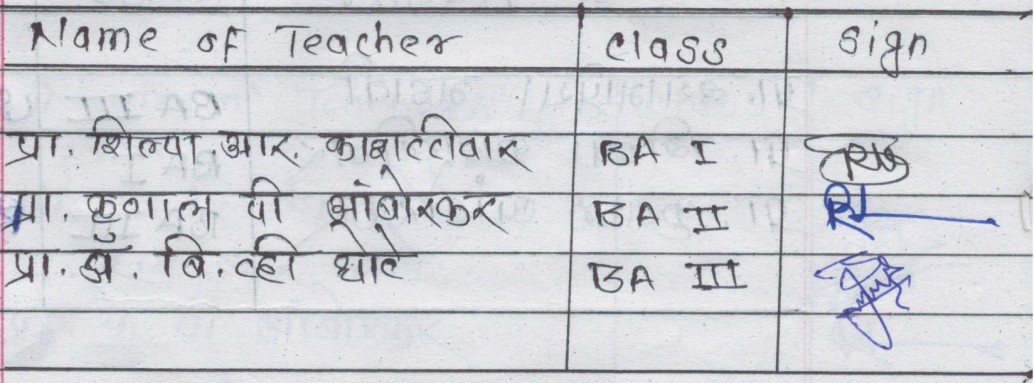 Name of Teacher class sign
प्रा. शिल्पा. आर. काबाटटीवार BA I
प्रा. कुणाल पी भांबोरकर BA II
प्रा. डॉ. बि. व्ही धोटे BA III